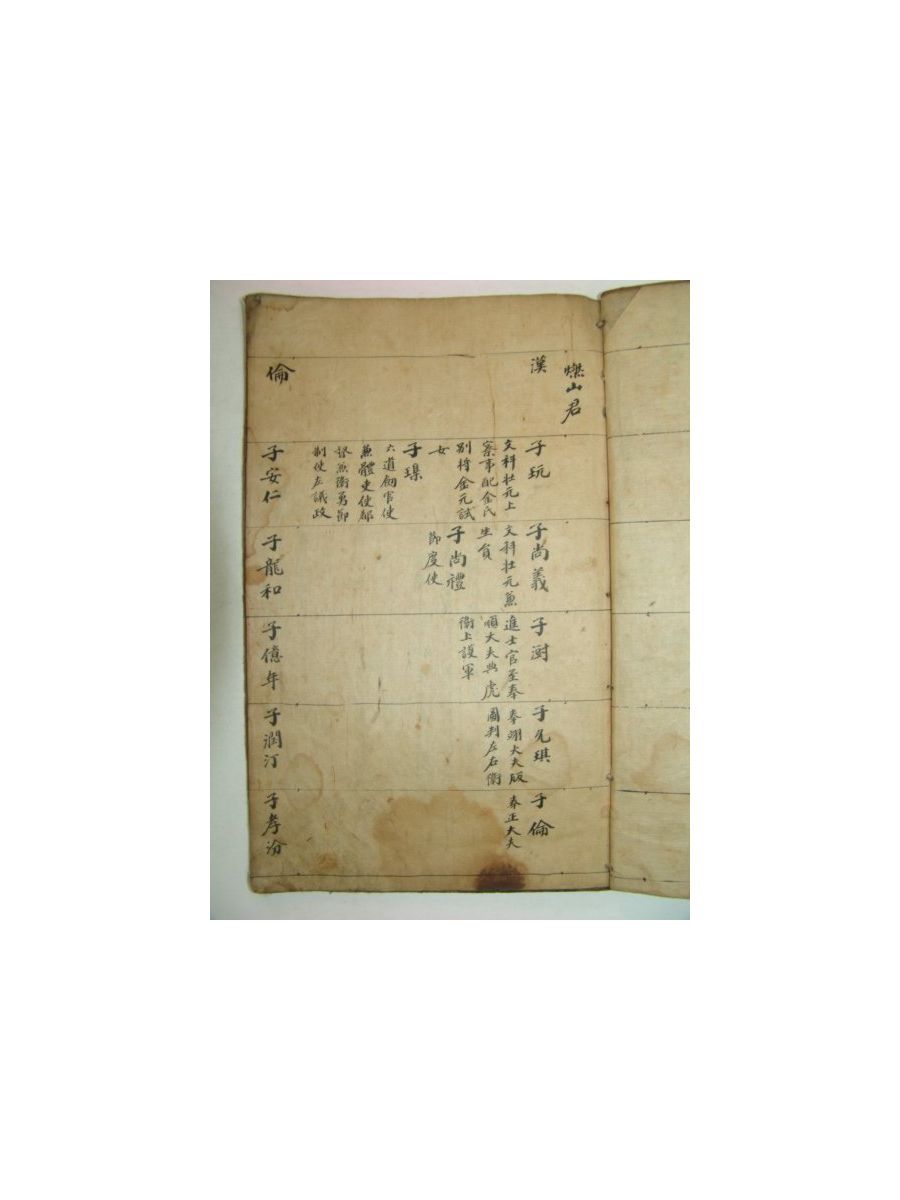 燦山君
漢
子玩
文科壯元上
案事配金氏
別將金元試
女
子璟
六道
兼體
制使左議政
子尚義
文科壯元兼
生員
子尚禮
節度使
子澍
進士官至奉
順大夫典虎
衛上護軍
子允琪
奉翊大夫版
圖判左右衛
子倫
奉正大夫
倫
子安仁
子龍和
子億年
子潤汀
子孝汾